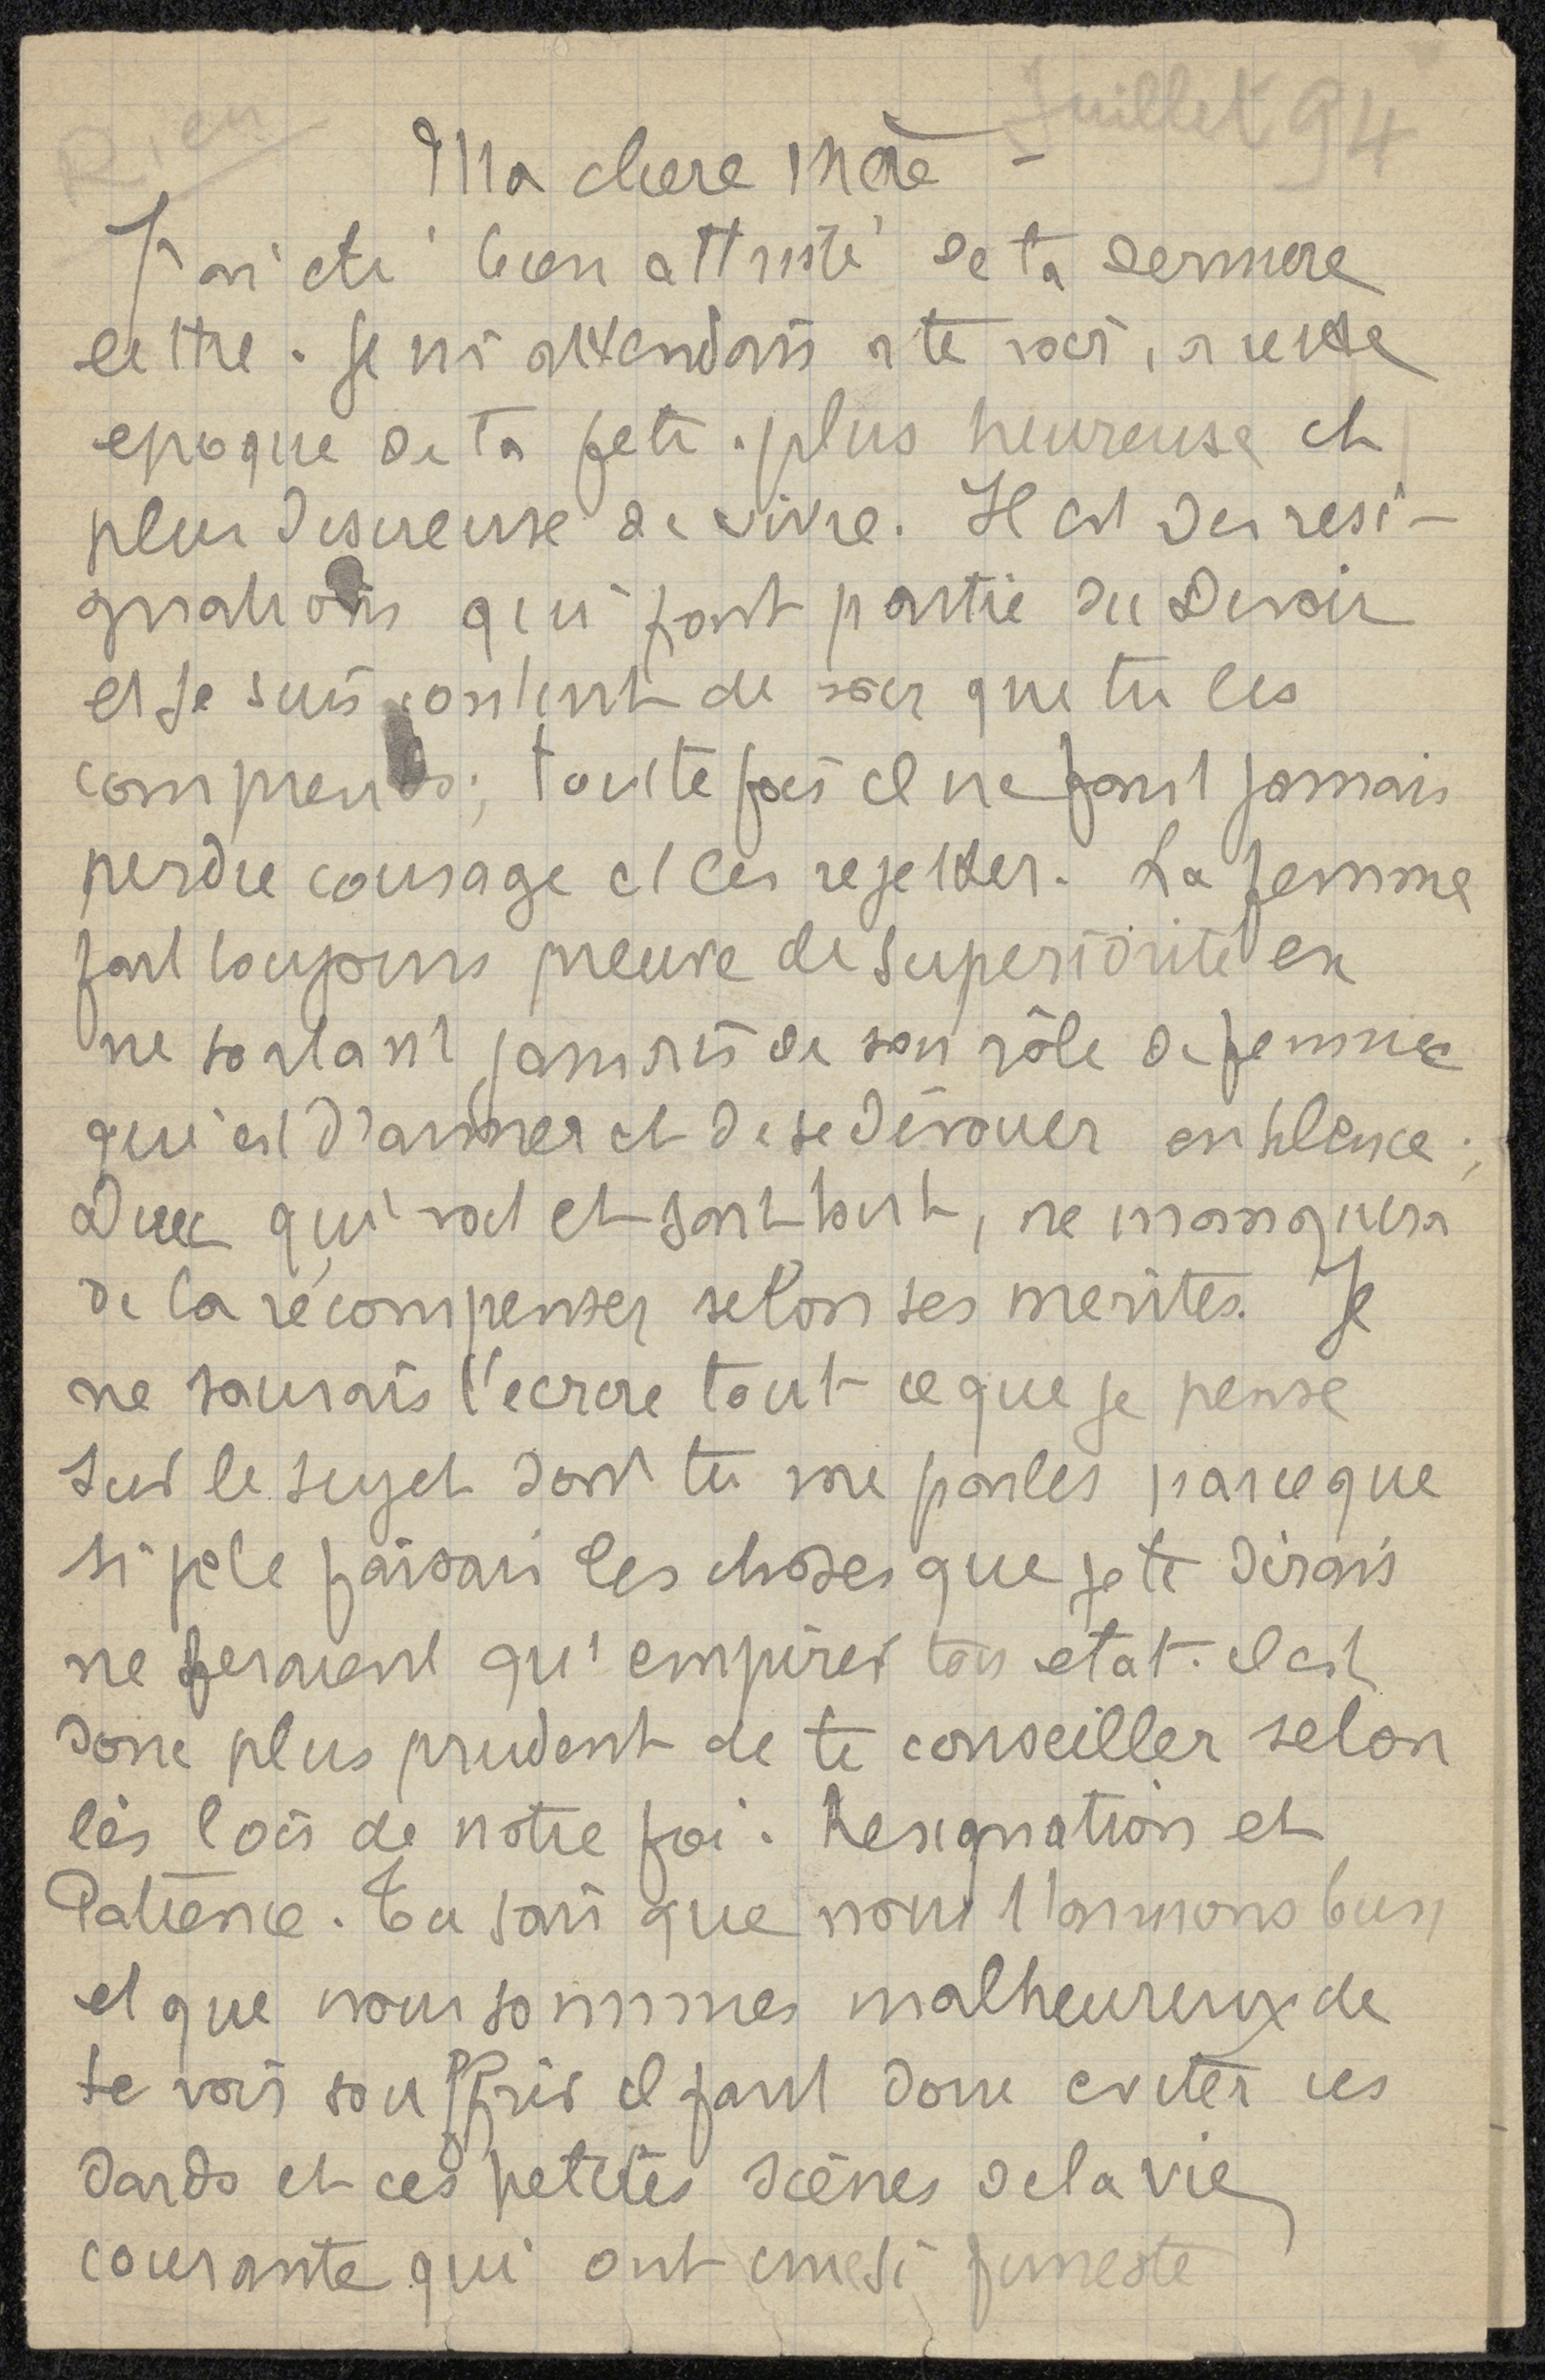 Rien
Juillet 94
Ma chere mère -
J'ai été bien attristé de ta derniere
lettre. Je m'attendais a te voir, a cette
epoque de ta fete. plus heureuse et
plus desireuse de vivre. Il est des resi-
gnations qui font partie du Devoir
et je suis content de voir que tu les
comprends; toutefois il ne faut jamais
perdre courage et les rejetter. La femme
fait toujours preuve de superiorité en
ne sortant jamais de son rôle de femme
qui est d'aimer et de se dévouer en silence;
Dieu qui voit et sait tout, ne manquera
de la récompenser selon ses merites. Je
ne saurais t'ecrire tout ce que je pense
sur le sujet dont tu me parles parceque
si je le faisais les choses que je te dirais
ne feraient qu'empirer ton etat. il est
donc plus prudent de te conseiller selon
les lois de notre foi. Resignation et
Patience. Tu sais que nous t'aimons bien
et que nous sommes malheureux de
te voir souffrir il faut donc eviter ces
dards et ces petites scènes de la vie
courante qui ont une si funeste